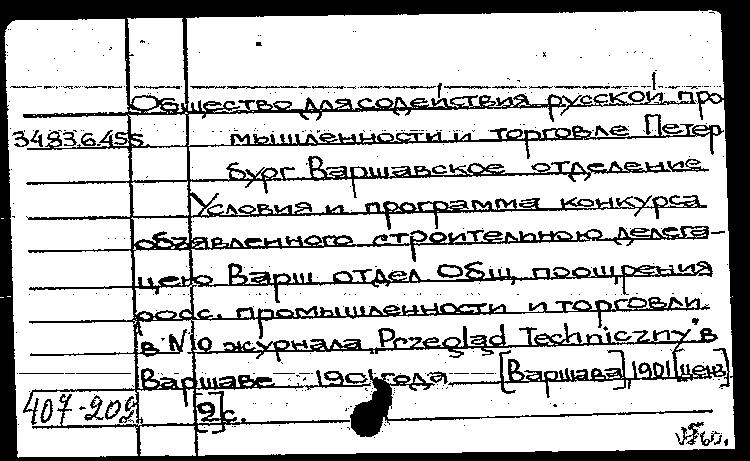 Общество для содействия русской про
3483645s. мышленности и торговле Петер
бург Варшавское отделение
Условия и программа конкурса
объявленного строительною делега-
цею Варш отдел Общ, поощрения
росс. промышленности и торговли
в №10 журнала "Przegląd Techniczny" в
Варшаве 1901 года [Варшава], 1901 [ценз]
407-202. [9] с.